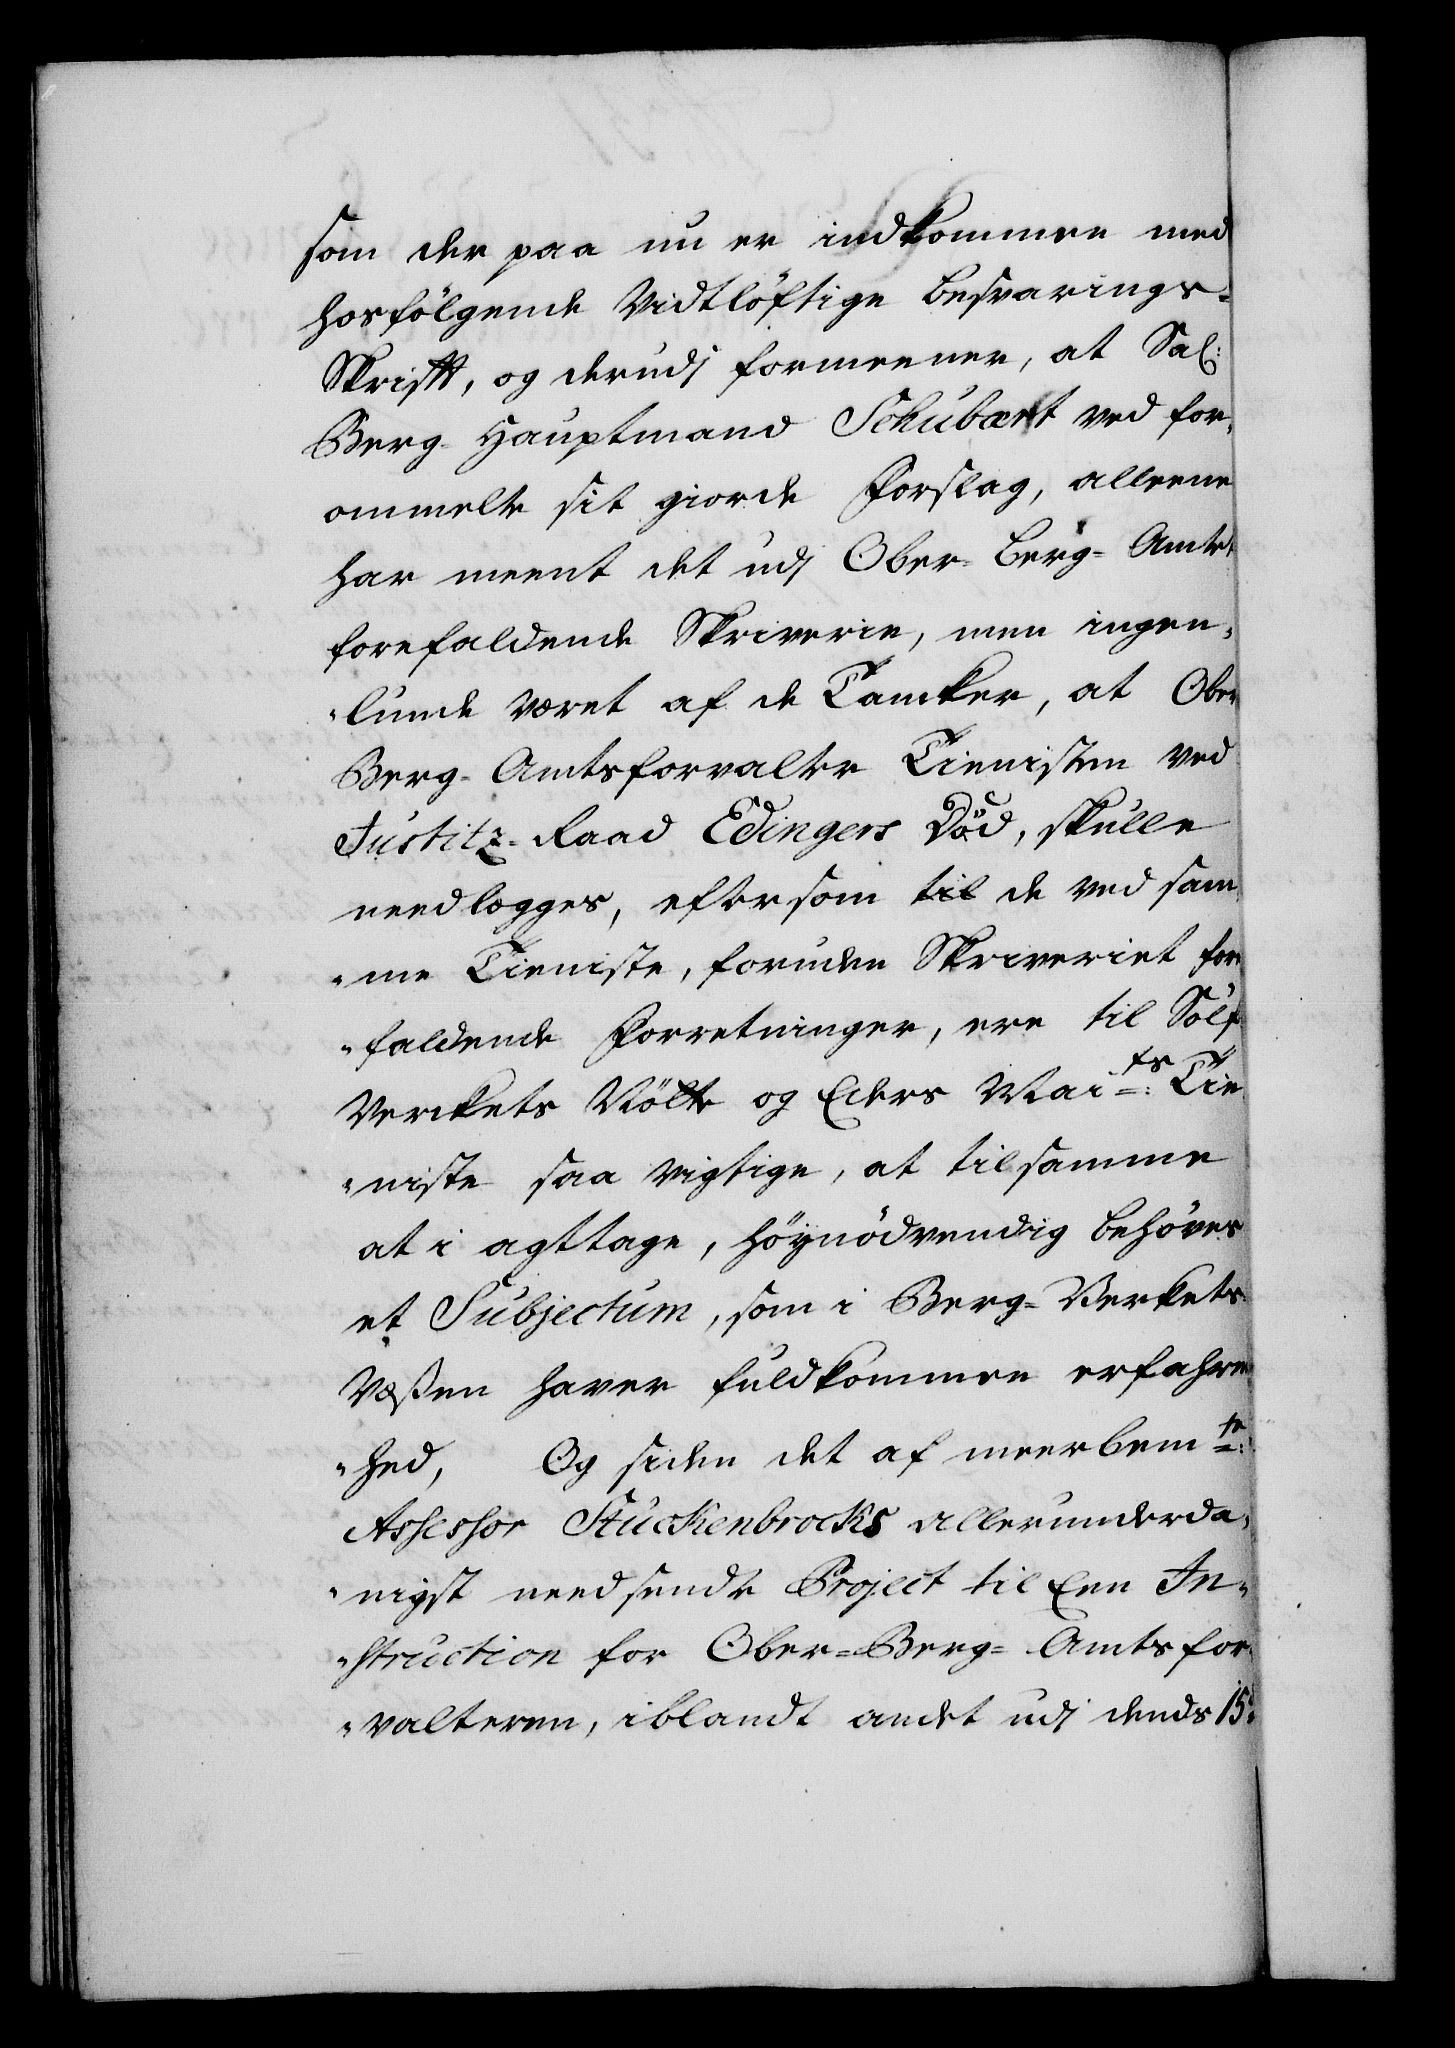 som der paa nu er indkommen med
hosfölgende Vidtlöftige Besvarings-
Skrifft, og derudj formeener, at Sal:
Berg-Hauptmand Schubart ved for-
ommelte sit giorde Forslag, alleene
har meent det udj Ober-Berg-Amtet
forefaldende Skriverie, men ingen-
-lunde været af de Tancker, at Ober
Berg-Amtsforvalter Tienisten ved
Justitz-Raad Edingers Död, skulle
needlægges, eftersom til de ved sam-
-me Tieniste, foruden Skriveriet fore
-faldende Forretninger, ere til Sölf-
Verckets Nötte og Eders Mai:ts Tie
-niste saa vigtige, at til samme
at i agttage, höynödvendig behöves
et Subjectum, som i Berg-Verckets-
Væßen haver fuldkommen erfahren-
-hed, Og siden det af meerbem:te
Assessor Stuckenbrocks allerunderda-
-nigst needsendte Project til een In-
-struction for Ober-Berg-Amtsfor-
-valteren, iblandt andet udj dends 15d